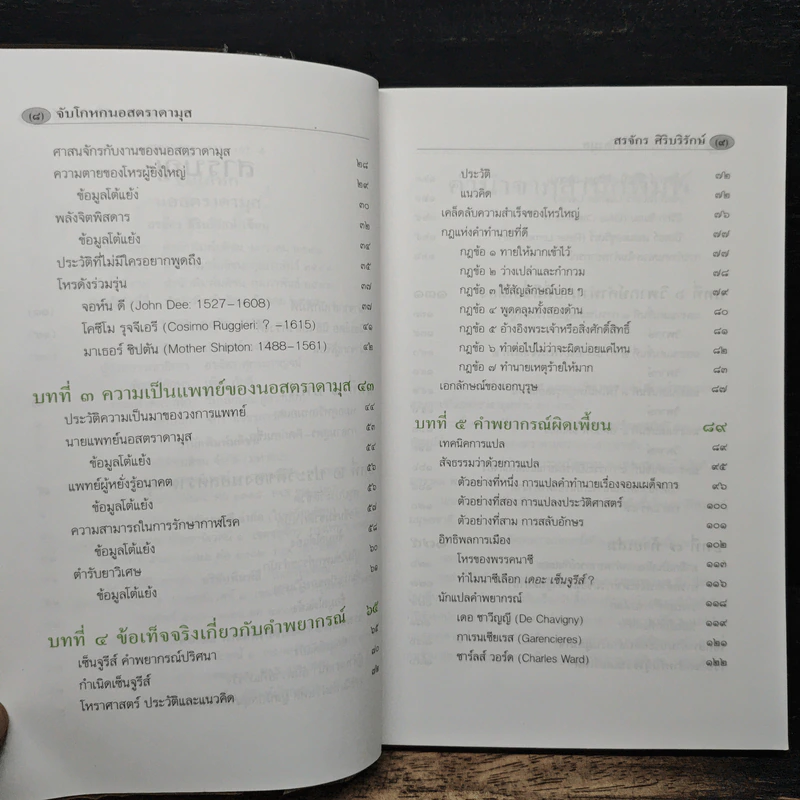 (๘) จับโกหกนอสตราดามุส
ศาสนจักรกับงานของนอสตราดามุส ๒๘
ความตายของโหรผู้ยิ่งใหญ่ ๒๙
ข้อมูลโต้แย้ง ๓๐
พลังจิตพิสดาร ๓๒
ข้อมูลโต้แย้ง ๓๔
ประวัติที่ไม่มีใครอยากพูดถึง ๓๕
โหรดังร่วมรุ่น ๓๗
จอห์น ดี (John Dee: 1527–1608) ๓๘
โคซิโม รุจจิเอรี (Cosimo Ruggieri: ? -1615) ๔๑
มาเธอร์ ชิปตัน (Mother Shipton: 1488-1561) ๔๒
บทที่ ๓ ความเป็นแพทย์ของนอสตราดามุส ๔๓
ประวัติความเป็นมาของวงการแพทย์ ๔๔
นายแพทย์นอสตราดามุส ๕๓
ข้อมูลโต้แย้ง ๕๔
แพทย์ผู้หยั่งรู้อนาคต ๕๖
ข้อมูลโต้แย้ง ๕๖
ความสามารถในการรักษากาฬโรค ๕๘
ข้อมูลโต้แย้ง ๖๐
ตำรับยาวิเศษ ๖๑
ข้อมูลโต้แย้ง
บทที่ ๔ ข้อเท็จจริงเกี่ยวกับคำพยากรณ์ ๖๕
เซ็นจูรีส์ คำพยากรณ์ปริศนา ๖๕
กำเนิดเซ็นจูรีส์ ๗๐
โหราศาสตร์ ประวัติและแนวคิด ๗๒
สรจักร ศิริบริรักษ์ (๙)
ประวัติ ๗๒
แนวคิด ๗๒
เคล็ดลับความสำเร็จของโหรใหญ่ ๗๖
กฎแห่งคำทำนายที่ดี ๗๗
กฎข้อ ๑ ทายให้มากเข้าไว้ ๗๗
กฎข้อ ๒ ว่างเปล่าและกำกวม ๗๘
กฎข้อ ๓ ใช้สัญลักษณ์บ่อย ๆ ๗๙
กฎข้อ ๔ พูดคลุมทั้งสองด้าน ๘๐
กฎข้อ ๕ อ้างอิงพระเจ้าหรือสิ่งศักดิ์สิทธิ์ ๘๑
กฎข้อ ๖ ทำต่อไปไม่ว่าจะผิดบ่อยแค่ไหน ๘๒
กฎข้อ ๗ ทำนายเหตุร้ายให้มาก ๘๓
เอกลักษณ์ของเอกบุรุษ ๘๗
บทที่ ๕ คำพยากรณ์ผิดเพี้ยน ๘๙
เทคนิคการแปล ๘๙
สัจธรรมว่าด้วยการแปล ๙๕
ตัวอย่างที่หนึ่ง การแปลคำทำนายเรื่องจอมเผด็จการ ๙๖
ตัวอย่างที่สอง การแปลงประวัติศาสตร์ ๑๐๐
ตัวอย่างที่สาม การสลับอักษร ๑๐๑
อิทธิพลการเมือง ๑๐๒
โหรของพรรคนาซี ๑๑๓
ทำไมนาซีเลือก เดอะ เซ็นจูรีส์ ? ๑๑๖
นักแปลคำพยากรณ์ ๑๑๘
เดอ ชาวีญญี (De Chavigny) ๑๑๙
กาเรนเซียเรส (Garencieres) ๑๒๑
ชาร์ลส์ วอร์ด (Charles Ward) ๑๒๒